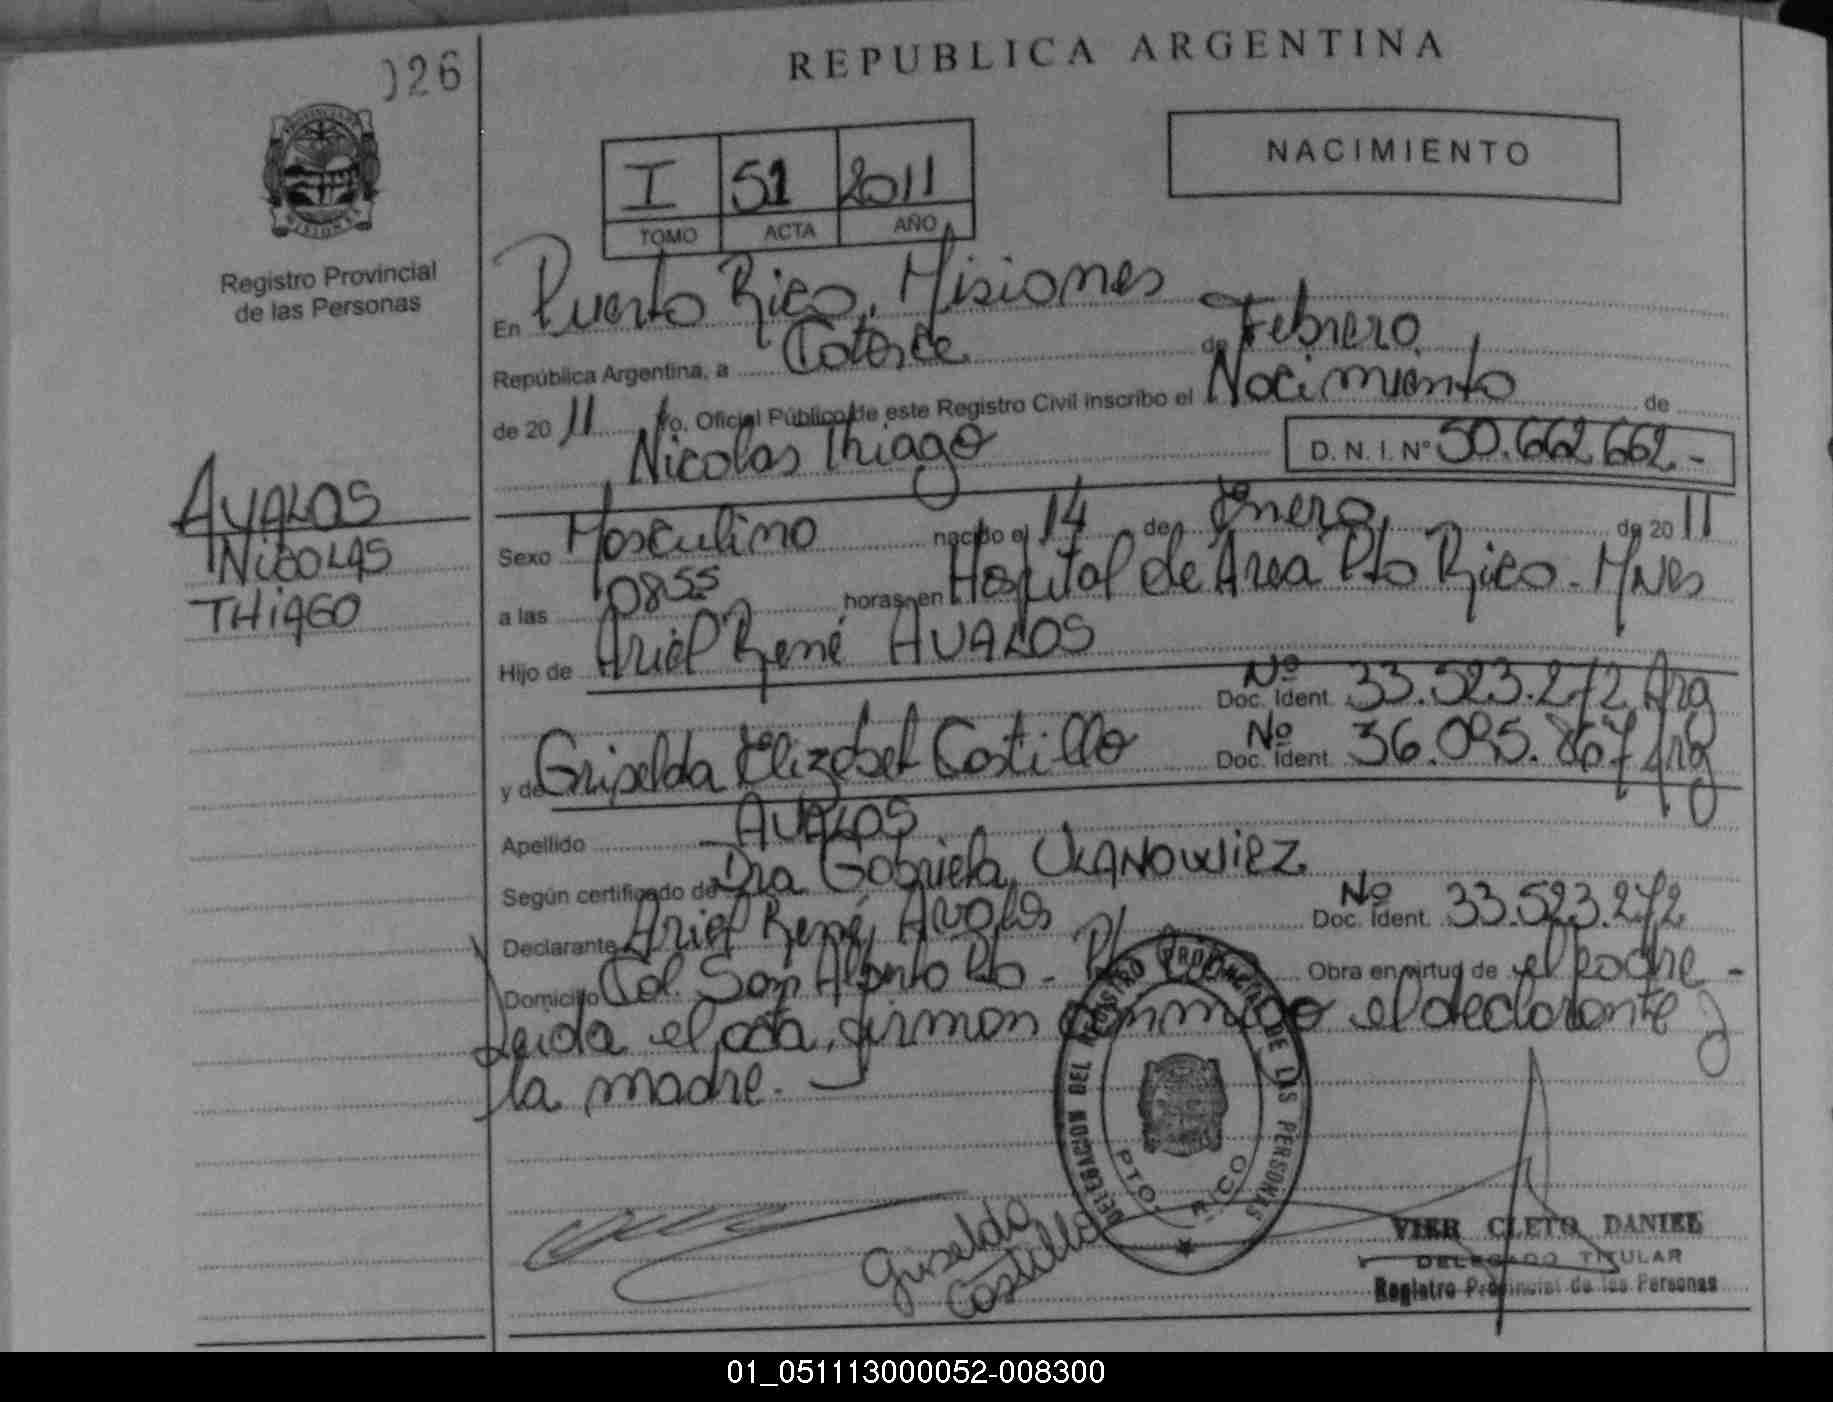 026
REPUBLICA ARGENTINA
NACIMIENTO
I 51 2011
TOMO ACTA AÑO
Registro Provincial
de las Personas
AVALOS
NICOLAS
THIAGO
En Puerto Rico, Misiones
República Argentina, a Catorce de Febrero
de 2011 Yo, Oficial Público de este Registro Civil inscribo el Nacimiento de
Nicolas Thiago D. N. I. N° 50.662.662.-
Sexo Masculino nacido el 14 de Enero de 2011
a las 0855 horas, en Hospital de Area Pto Rico - Mnes
Hijo de Ariel René AVALOS
Nº
Doc. Ident. 33.523.272 Arg
y de Griselda Elizabet Castillo Nº
Doc. Ident. 36.095.867 Arg
Apellido AVALOS
Según certificado de Dra Gabriela
Declarante Ariel René Avalos Nº
Doc. Ident. 33.523.272
Domicilio Col. San Alberto Pto - Pto Rico Obra en virtud de el padre -
Leida el acta, firman conmigo el declarante y
la madre.-
DELEGACION DEL REGISTRO PROVINCIAL DE LAS PERSONAS
PTO. RICO
Griselda
Castillo
VIER CLETO DANIEL
DELEGADO TITULAR
Registro Provincial de las Personas
01_051113000052-008300